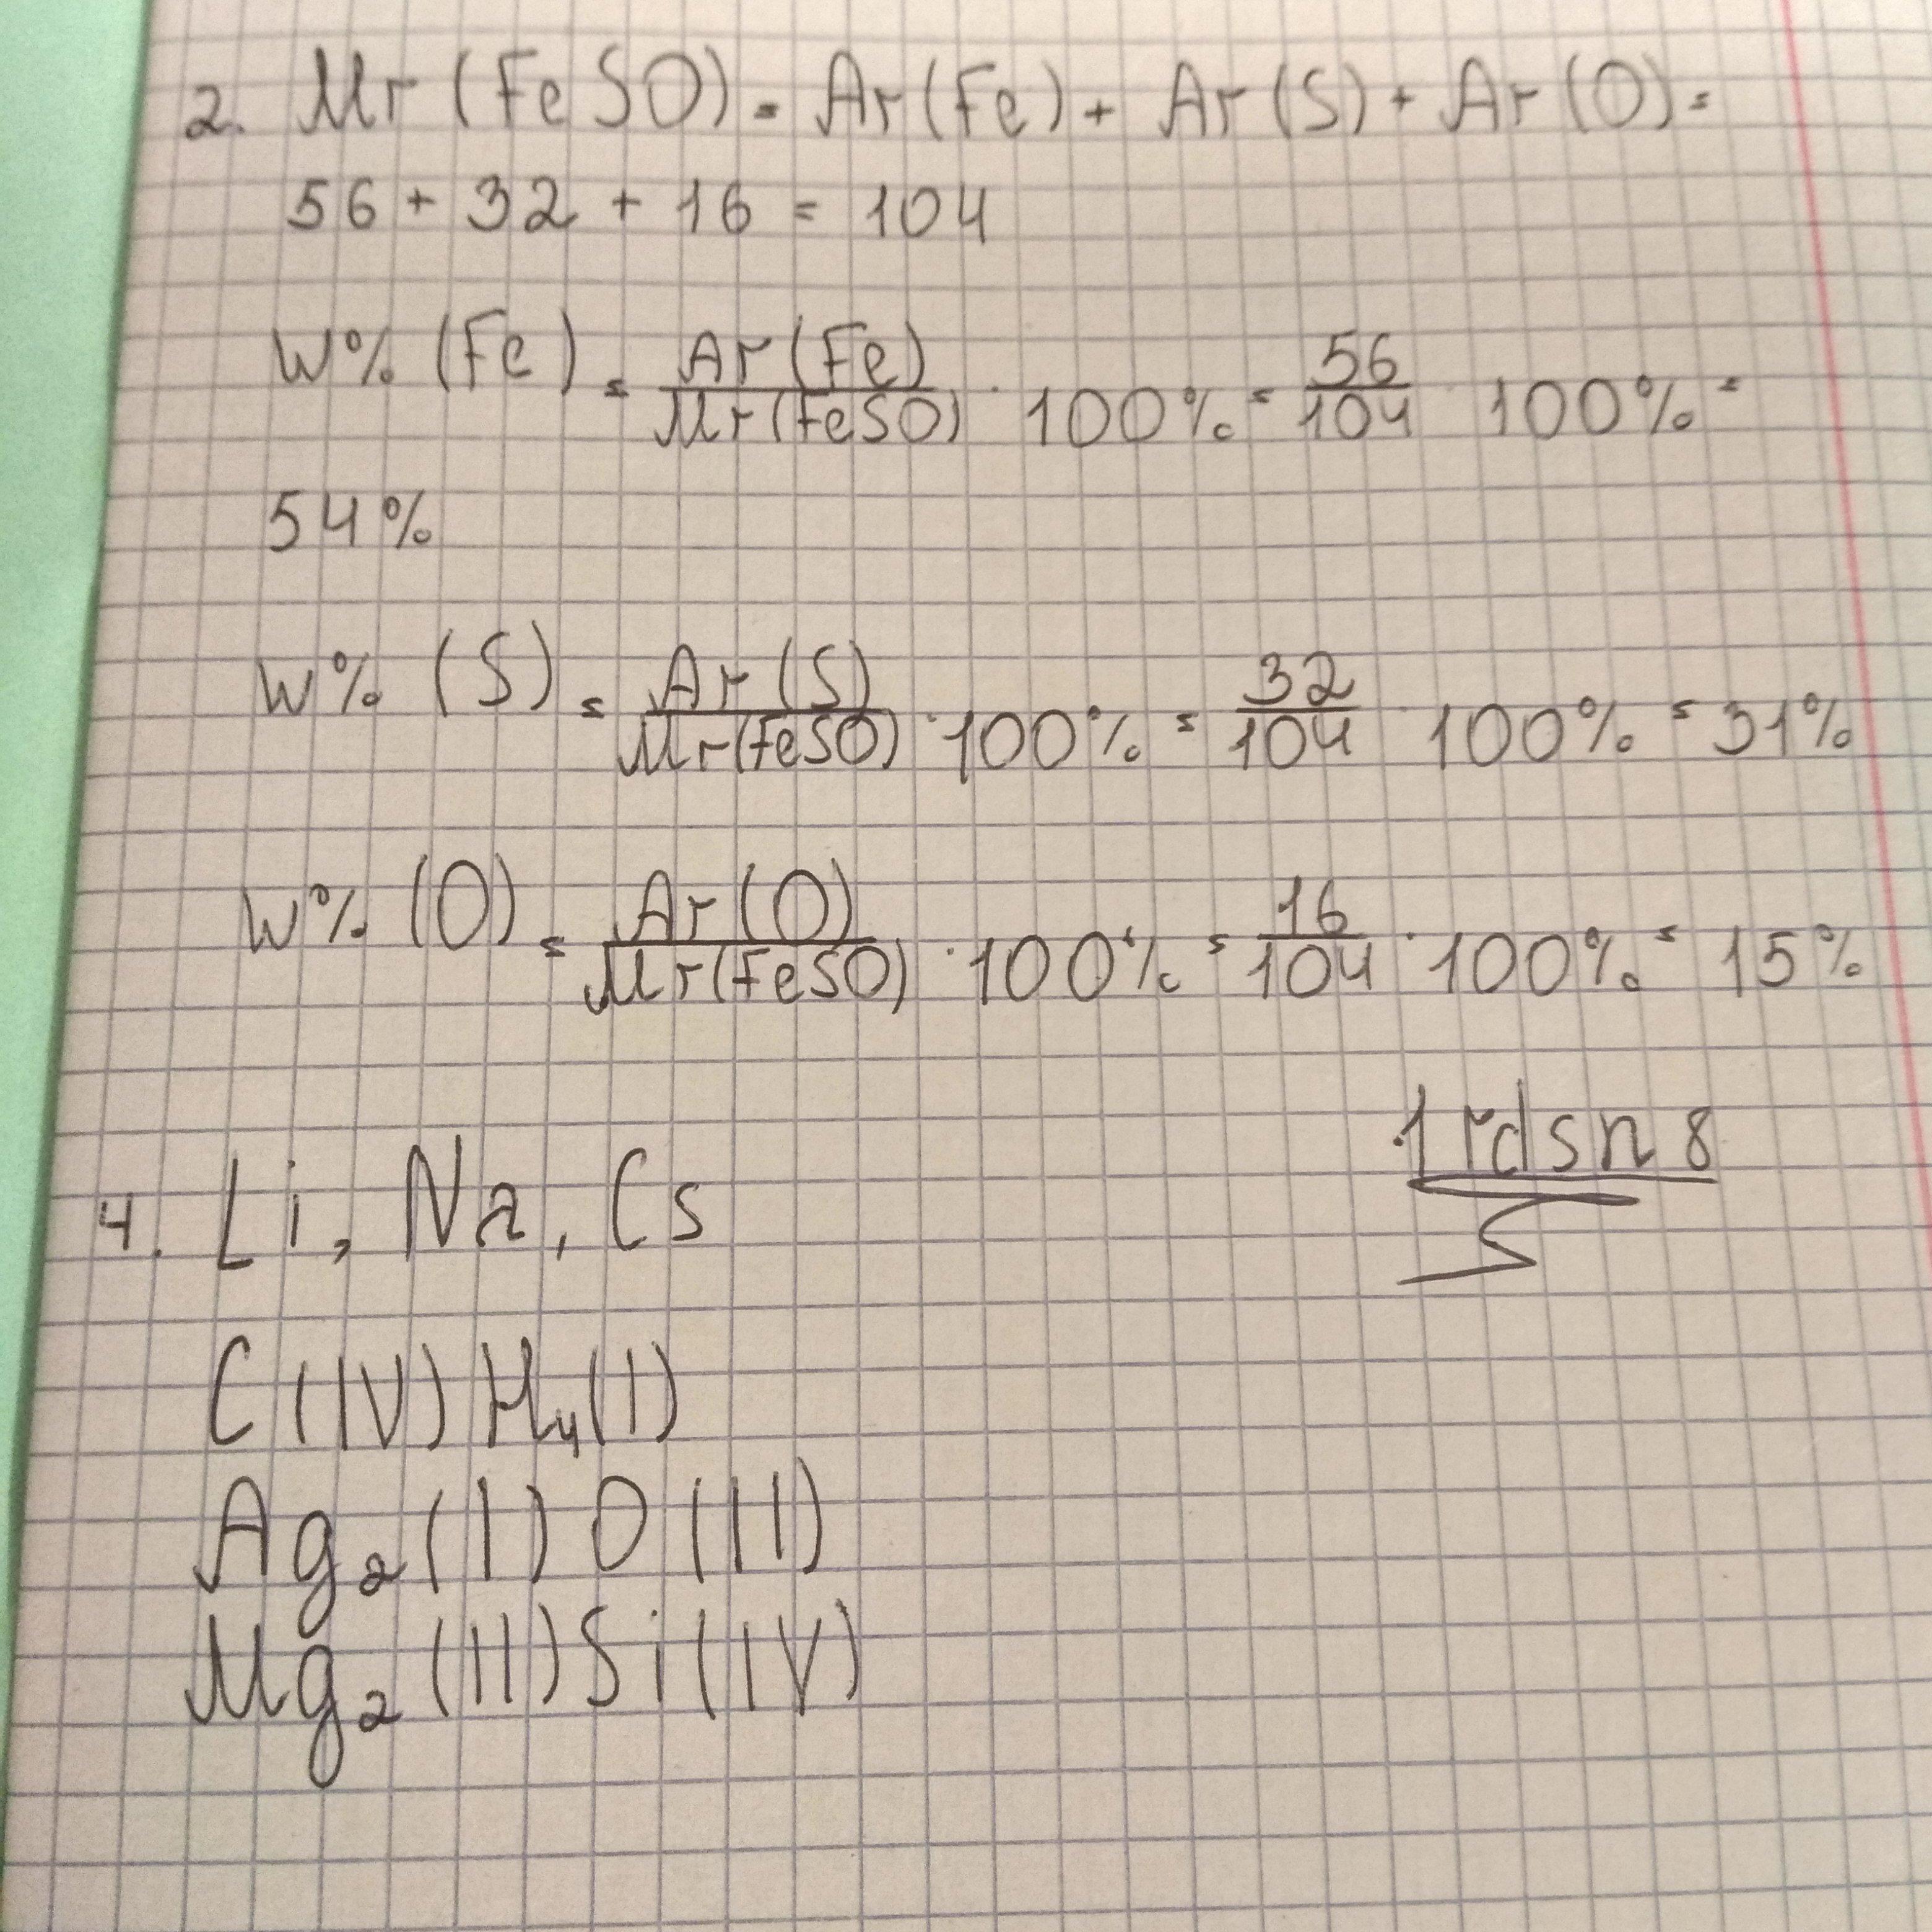 2. Mr (FeSO) = Ar(Fe) + Ar(S) + Ar(O) =
56 + 32 + 16 = 104
W% (Fe) = Ar(Fe)/Mr(FeSO) · 100% = 56/104 100% =
54%
W% (S) = Ar(S)/Mr(FeSO) · 100% = 32/104 100% = 31%
W% (O) = Ar(O)/Mr(FeSO) · 100% = 16/104 · 100% = 15%
1rdsn8
4. Li, Na, Cs
C(IV)H₄(I)
Ag₂(I)O(II)
Mg₂(II)Si(IV)